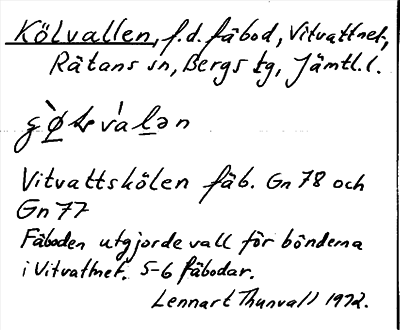 Kölvallen, f.d. fäbod, Vitvattnet,
Rätans sn, Bergs tg, Jämtl.l.
Vitvattskölen fäb. Gn 78 och
Gn 77
Fäboden utgjorde vall för bönderna
i Vitvattnet. 5-6 fäbodar.
Lennart Thunvall 1972.